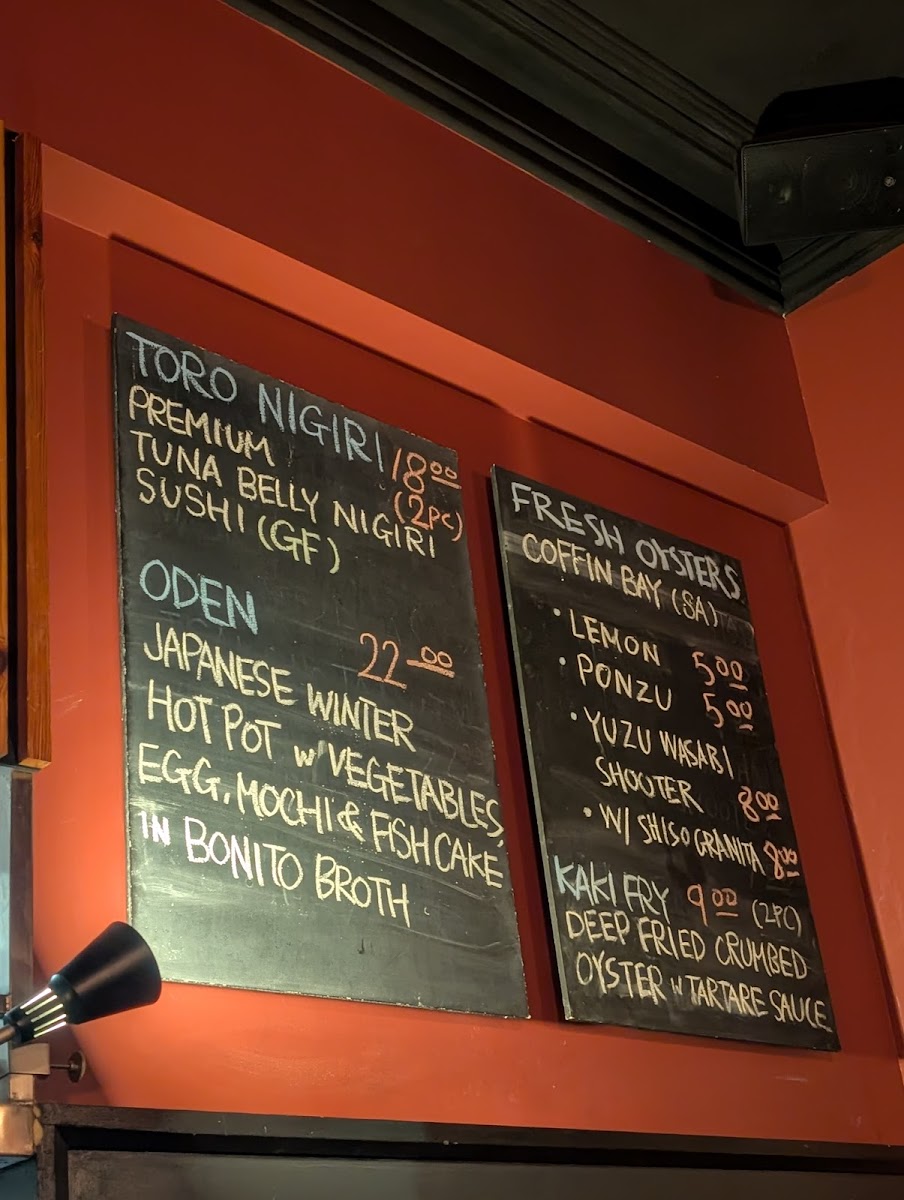 TORO NIGIRI 18.00
PREMIUM (2PC)
TUNA BELLY NIGIRI
SUSHI (GF)
ODEN 22.00
JAPANESE WINTER
HOT POT w/ VEGETABLES,
EGG, MOCHI & FISHCAKE
IN BONITO BROTH
FRESH OYSTERS
COFFIN BAY (SA)
• LEMON 5.00
• PONZU 5.00
• YUZU WASABI
SHOOTER 8.00
• W/ SHISO GRANITA 8.00
KAKI FRY 9.00 (2PC)
DEEP FRIED CRUMBED
OYSTER w TARTARE SAUCE